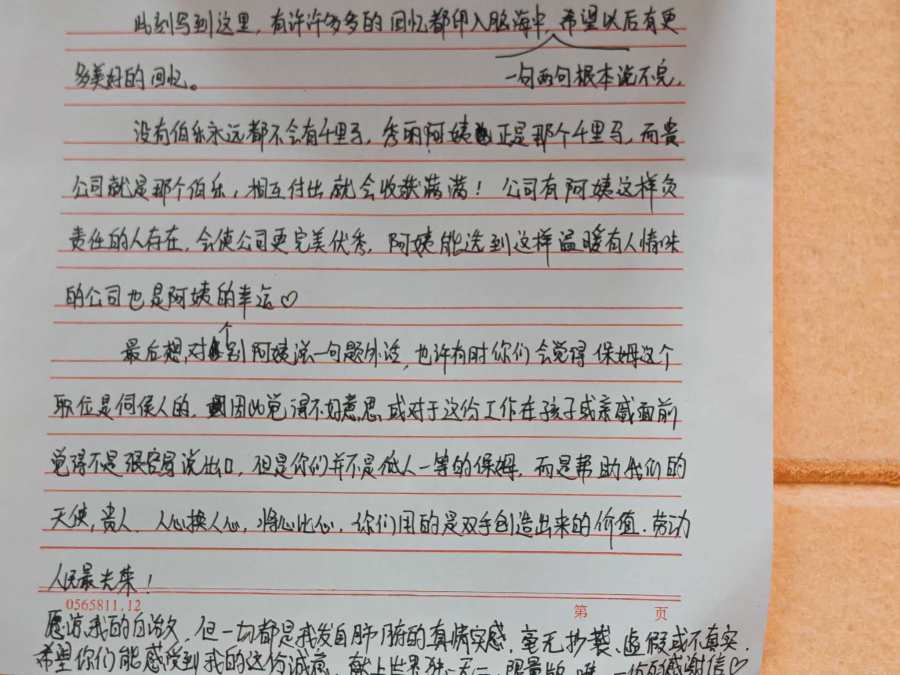 此刻写到这里,有许许多多的回忆都印入脑海中,希望以后有更
多美好的回忆。
一句两句根本说不完,
没有伯乐永远都不会有千里马,秀丽阿姨正是那个千里马,而贵
公司就是那个伯乐,相互付出就会收获满满!公司有阿姨这样负
责任的人存在,会使公司更完美优秀,阿姨能选到这样温暖有人情味
的公司也是阿姨的幸运♡
最后想对个别阿姨说一句题外话,也许有时你们会觉得保姆这个
职位是伺侯人的,因此觉得不好意思或对于这份工作在孩子或亲戚面前
觉得不是很容易说出口,但是你们并不是低人一等的保姆,而是帮助我们的
天使,贵人、人心换人心,将心比心,你们用的是双手创造出来的价值.劳动
人民最光荣!
0565811.12 第 页
愿谅我的白话文,但一切都是我发自肺腑的真情实感,毫无抄袭、虚假或不真实.
希望你们能感受到我的这份诚意,献上世界独一无二,限量版,唯一一份的感谢信♡